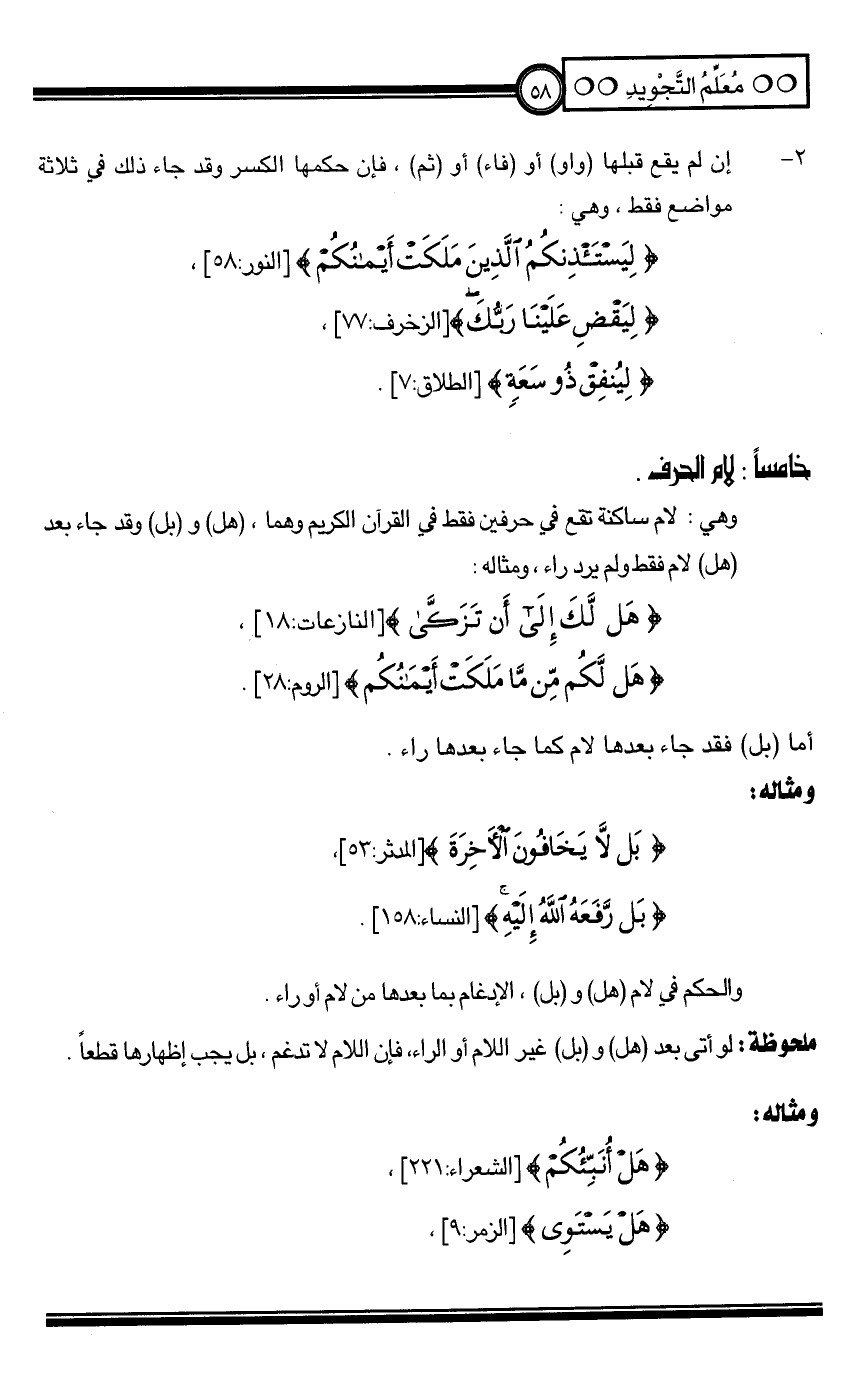 ○○ مُعَلِّمُ التَّجْوِيدِ ○○
٥٨
٢- إن لم يقع قبلها (واو) أو (فاء) أو (ثم) ، فإن حكمها الكسر وقد جاء ذلك في ثلاثة
مواضع فقط ، وهي :
﴿ لِيَسْتَـْٔذِنكُمُ ٱلَّذِينَ مَلَكَتْ أَيْمَـٰنُكُمْ ﴾ [النور:٥٨] ،
﴿ لِيَقْضِ عَلَيْنَا رَبُّكَ ۖ ﴾[الزخرف:٧٧] ،
﴿ لِيُنفِقْ ذُو سَعَةٍ ﴾ [الطلاق:٧] .
خامساً : لام الحرف .
وهي : لام ساكنة تقع في حرفين فقط في القرآن الكريم وهما ، (هل) و (بل) وقد جاء بعد
(هل) لام فقط ولم يرد راء ، ومثاله :
﴿ هَل لَّكَ إِلَىٰٓ أَن تَزَكَّىٰ ﴾[النازعات:١٨] ،
﴿ هَل لَّكُم مِّن مَّا مَلَكَتْ أَيْمَـٰنُكُم ﴾ [الروم:٢٨] .
أما (بل) فقد جاء بعدها لام كما جاء بعدها راء .
ومثاله:
﴿ بَل لَّا يَخَافُونَ ٱلْأَخِرَةَ ﴾[المدثر:٥٣]،
﴿ بَل رَّفَعَهُ ٱللَّهُ إِلَيْهِ ۚ ﴾ [النساء:١٥٨] .
والحكم في لام (هل) و (بل) ، الإدغام بما بعدها من لام أو راء .
ملحوظة: لو أتى بعد (هل) و (بل) غير اللام أو الراء، فإن اللام لا تدغم ، بل يجب إظهارها قطعاً .
ومثاله:
﴿ هَلْ أُنَبِّئُكُمْ ﴾ [الشعراء:٢٢١] ،
﴿ هَلْ يَسْتَوِى ﴾ [الزمر:٩] ،